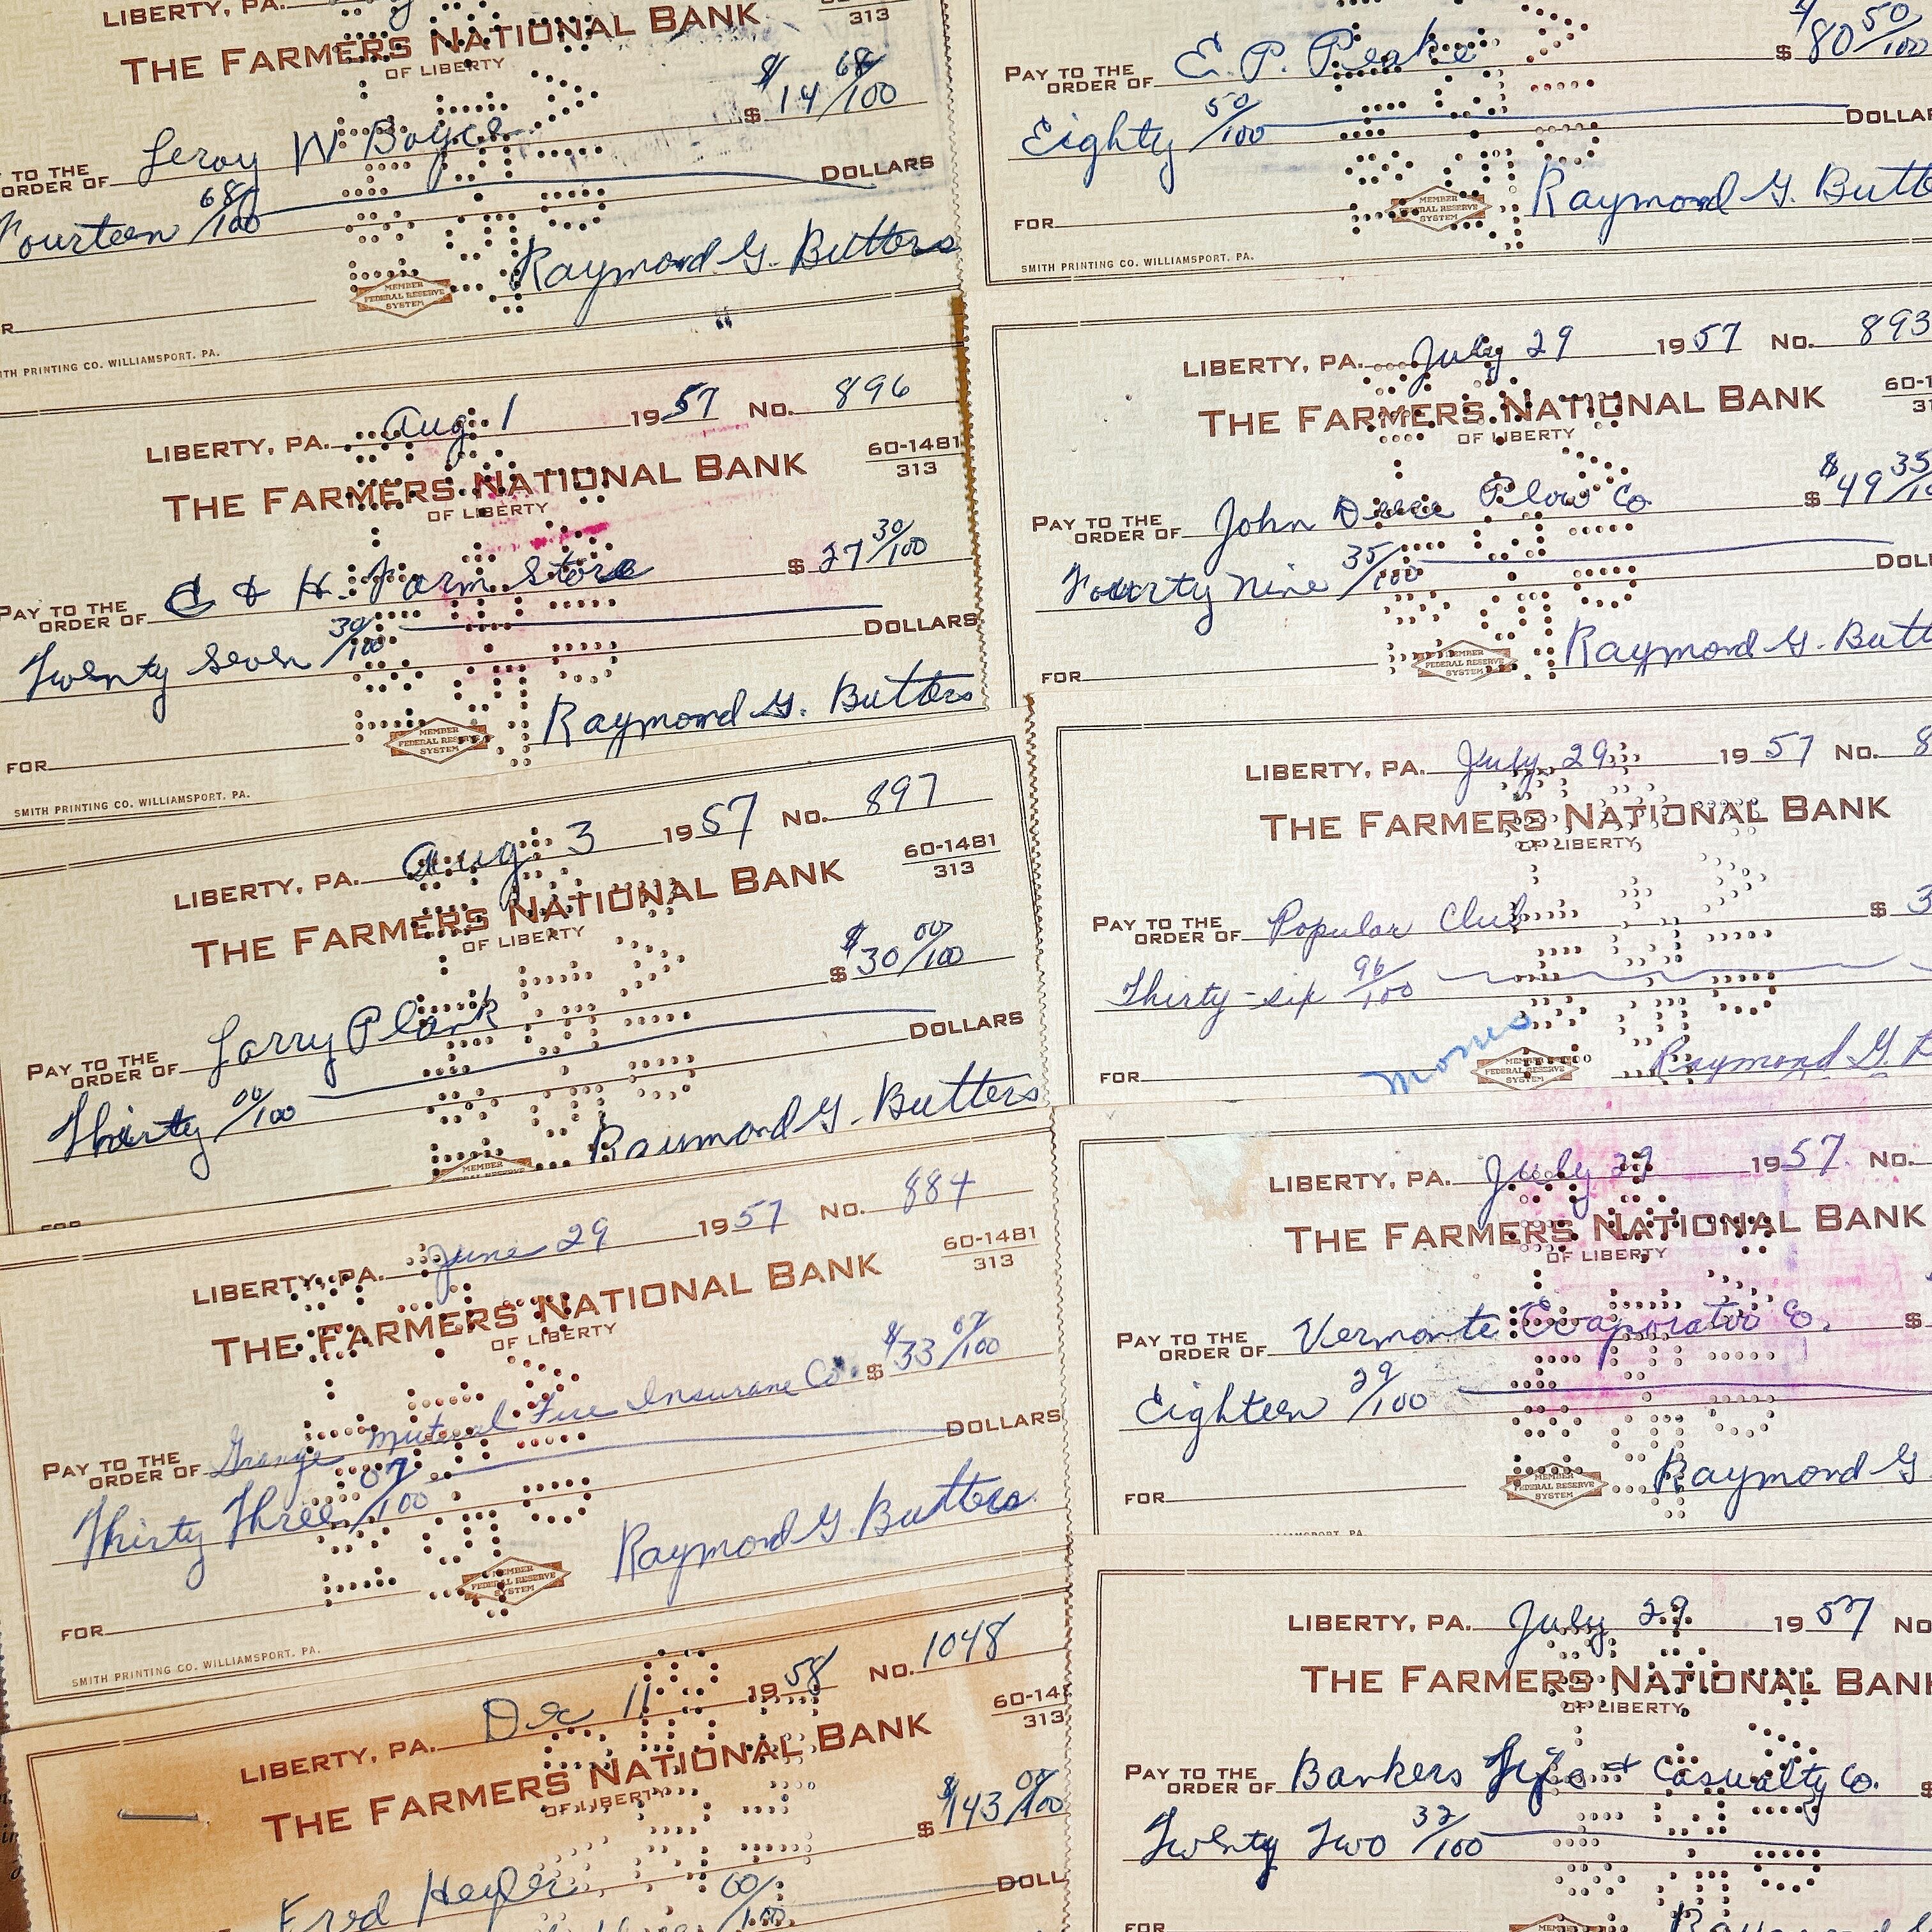 LIBERTY, PA.
THE FARMERS NATIONAL BANK
OF LIBERTY
313
$ $14 68/100
TO THE ORDER OF Leroy W Boyce
Fourteen 68/100 DOLLARS
MEMBER FEDERAL RESERVE SYSTEM
Raymond G. Butters
SMITH PRINTING CO. WILLIAMSPORT, PA.
LIBERTY, PA. Aug 1 1957 No. 896
THE FARMERS NATIONAL BANK
OF LIBERTY
60-1481
313
PAY TO THE ORDER OF C & H. Farm Store $ 27 30/100
Twenty Seven 30/100 DOLLARS
FOR
MEMBER FEDERAL RESERVE SYSTEM
Raymond G. Butters
SMITH PRINTING CO. WILLIAMSPORT, PA.
LIBERTY, PA. Aug 3 1957 No. 897
THE FARMERS NATIONAL BANK
OF LIBERTY
60-1481
313
PAY TO THE ORDER OF Larry Plank $ $30 00/100
Thirty 00/100 DOLLARS
MEMBER
Raymond G. Butters
FOR
LIBERTY, PA. June 29 1957 No. 884
THE FARMERS NATIONAL BANK
OF LIBERTY
60-1481
313
PAY TO THE ORDER OF Grange Mutual Fire Insurane Co. $ $33 07/100
Thirty Three 07/100 DOLLARS
FOR
MEMBER FEDERAL RESERVE SYSTEM
Raymond G. Butters
SMITH PRINTING CO. WILLIAMSPORT, PA.
LIBERTY, PA. Dec 11 1958 No. 1048
THE FARMERS NATIONAL BANK
OF LIBERTY
60-14
313
$ $143 00/100
Fred Heyler
00/100 DOLL
PAY TO THE ORDER OF E. P. Peake $ $80 50/100
Eighty 50/100 DOLLAR
FOR
MEMBER FEDERAL RESERVE SYSTEM
Raymond G. Butt
SMITH PRINTING CO. WILLIAMSPORT, PA.
LIBERTY, PA. July 29 1957 No. 893
THE FARMERS NATIONAL BANK
OF LIBERTY
60-1
31
PAY TO THE ORDER OF John Deere Plow Co $ $49 35/10
Fourty Nine 35/100 DOL
FOR
MEMBER FEDERAL RESERVE SYSTEM
Raymond G. Butt
LIBERTY, PA. July 29 1957 No. 8
THE FARMERS NATIONAL BANK
OF LIBERTY
PAY TO THE ORDER OF Popular Club $ 3
Thirty-six 96/100
FOR
MEMBER FEDERAL RESERVE SYSTEM
Raymond G. B
LIBERTY, PA. July 29 1957. No.
THE FARMERS NATIONAL BANK
OF LIBERTY
PAY TO THE ORDER OF Vermonte Evaporator Co. $
Eighteen 29/100
FOR
MEMBER FEDERAL RESERVE SYSTEM
Raymond G
LIAMSPORT, PA.
LIBERTY, PA. July 29 1957 No
THE FARMERS NATIONAL BAN
OF LIBERTY
PAY TO THE ORDER OF Bankers Life & Casualty Co. $
Twenty Two 32/100
FOR
MEMBER